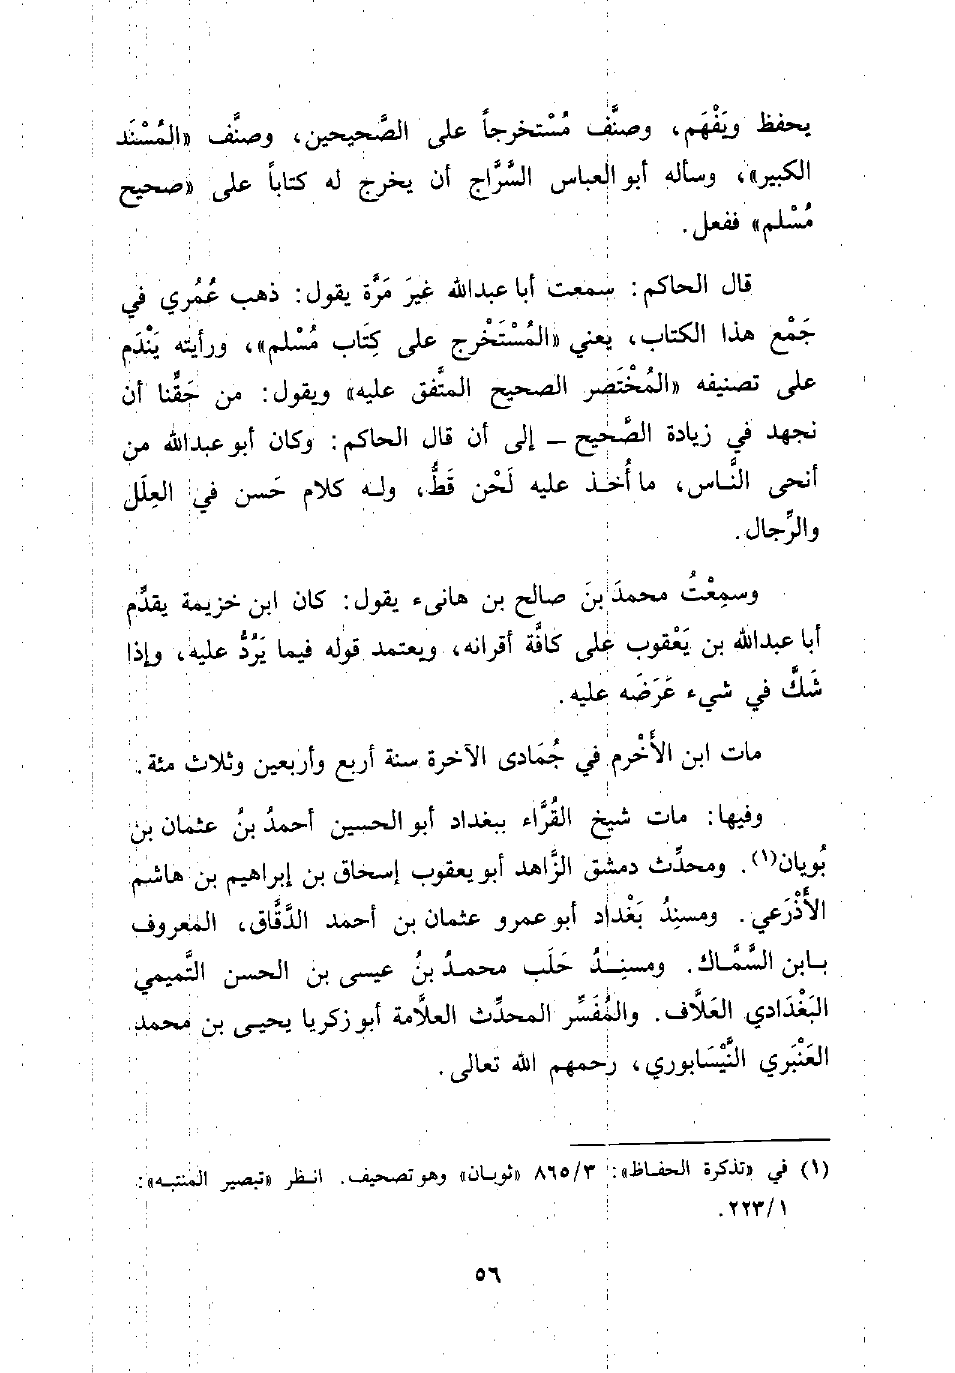 يحفظ ويَفْهَم، وصنَّف مُسْتخرجاً على الصَّحيحين، وصنَّف «المُسْنَد
الكبير»، وسأله أبو العباس السَّرَّاج أن يخرج له كتاباً على «صحيح
مُسْلم» ففعل.
قال الحاكم: سمعت أبا عبدالله غيرَ مَرَّة يقول: ذهب عُمُري في
جَمْع هذا الكتاب، يعني «المُسْتَخْرج على كِتَاب مُسْلم»، ورأيته يَنْدَم
على تصنيفه «المُخْتَصر الصحيح المتَّفق عليه» ويقول: من حَقِّنا أن
نجهد في زيادة الصَّحيح ــ إلى أن قال الحاكم: وكان أبو عبدالله من
أنحى النَّاس، ما أُخذ عليه لَحْن قَطُّ، وله كلام حَسن في العِلَل
والرِّجال.
وسمِعْتُ محمدَ بنَ صالح بن هانىء يقول: كان ابن خزيمة يقدِّم
أبا عبدالله بن يَعْقوب على كافَّة أقرانه، ويعتمد قوله فيما يَرُدُّ عليه، وإذا
شَكَّ في شيء عَرَضَه عليه.
مات ابن الأَخْرم في جُمَادى الآخرة سنة أربع وأربعين وثلاث مئة.
وفيها: مات شيخ القُرَّاء ببغداد أبو الحسين أحمدُ بنُ عثمان بن
بُويان(١). ومحدِّث دمشق الزَّاهد أبو يعقوب إسحاق بن إبراهيم بن هاشم
الأَذْرَعي. ومسنِدُ بَغْداد أبو عمرو عثمان بن أحمد الدَّقَّاق، المعروف
بابن السَّمَّاك. ومسنِدُ حَلَب محمدُ بنُ عيسى بن الحسن التَّميمي
البَغْدَادي العَلَّاف. والمُفَسِّر المحدِّث العلَّامة أبو زكريا يحيى بن محمد
العَنْبَري النَّيْسَابوري، رحمهم الله تعالى.
(١) في «تذكرة الحفاظ»: ٨٦٥/٣ «ثوبان» وهو تصحيف. انظر «تبصير المنتبه»:
٢٢٣/١.
٥٦